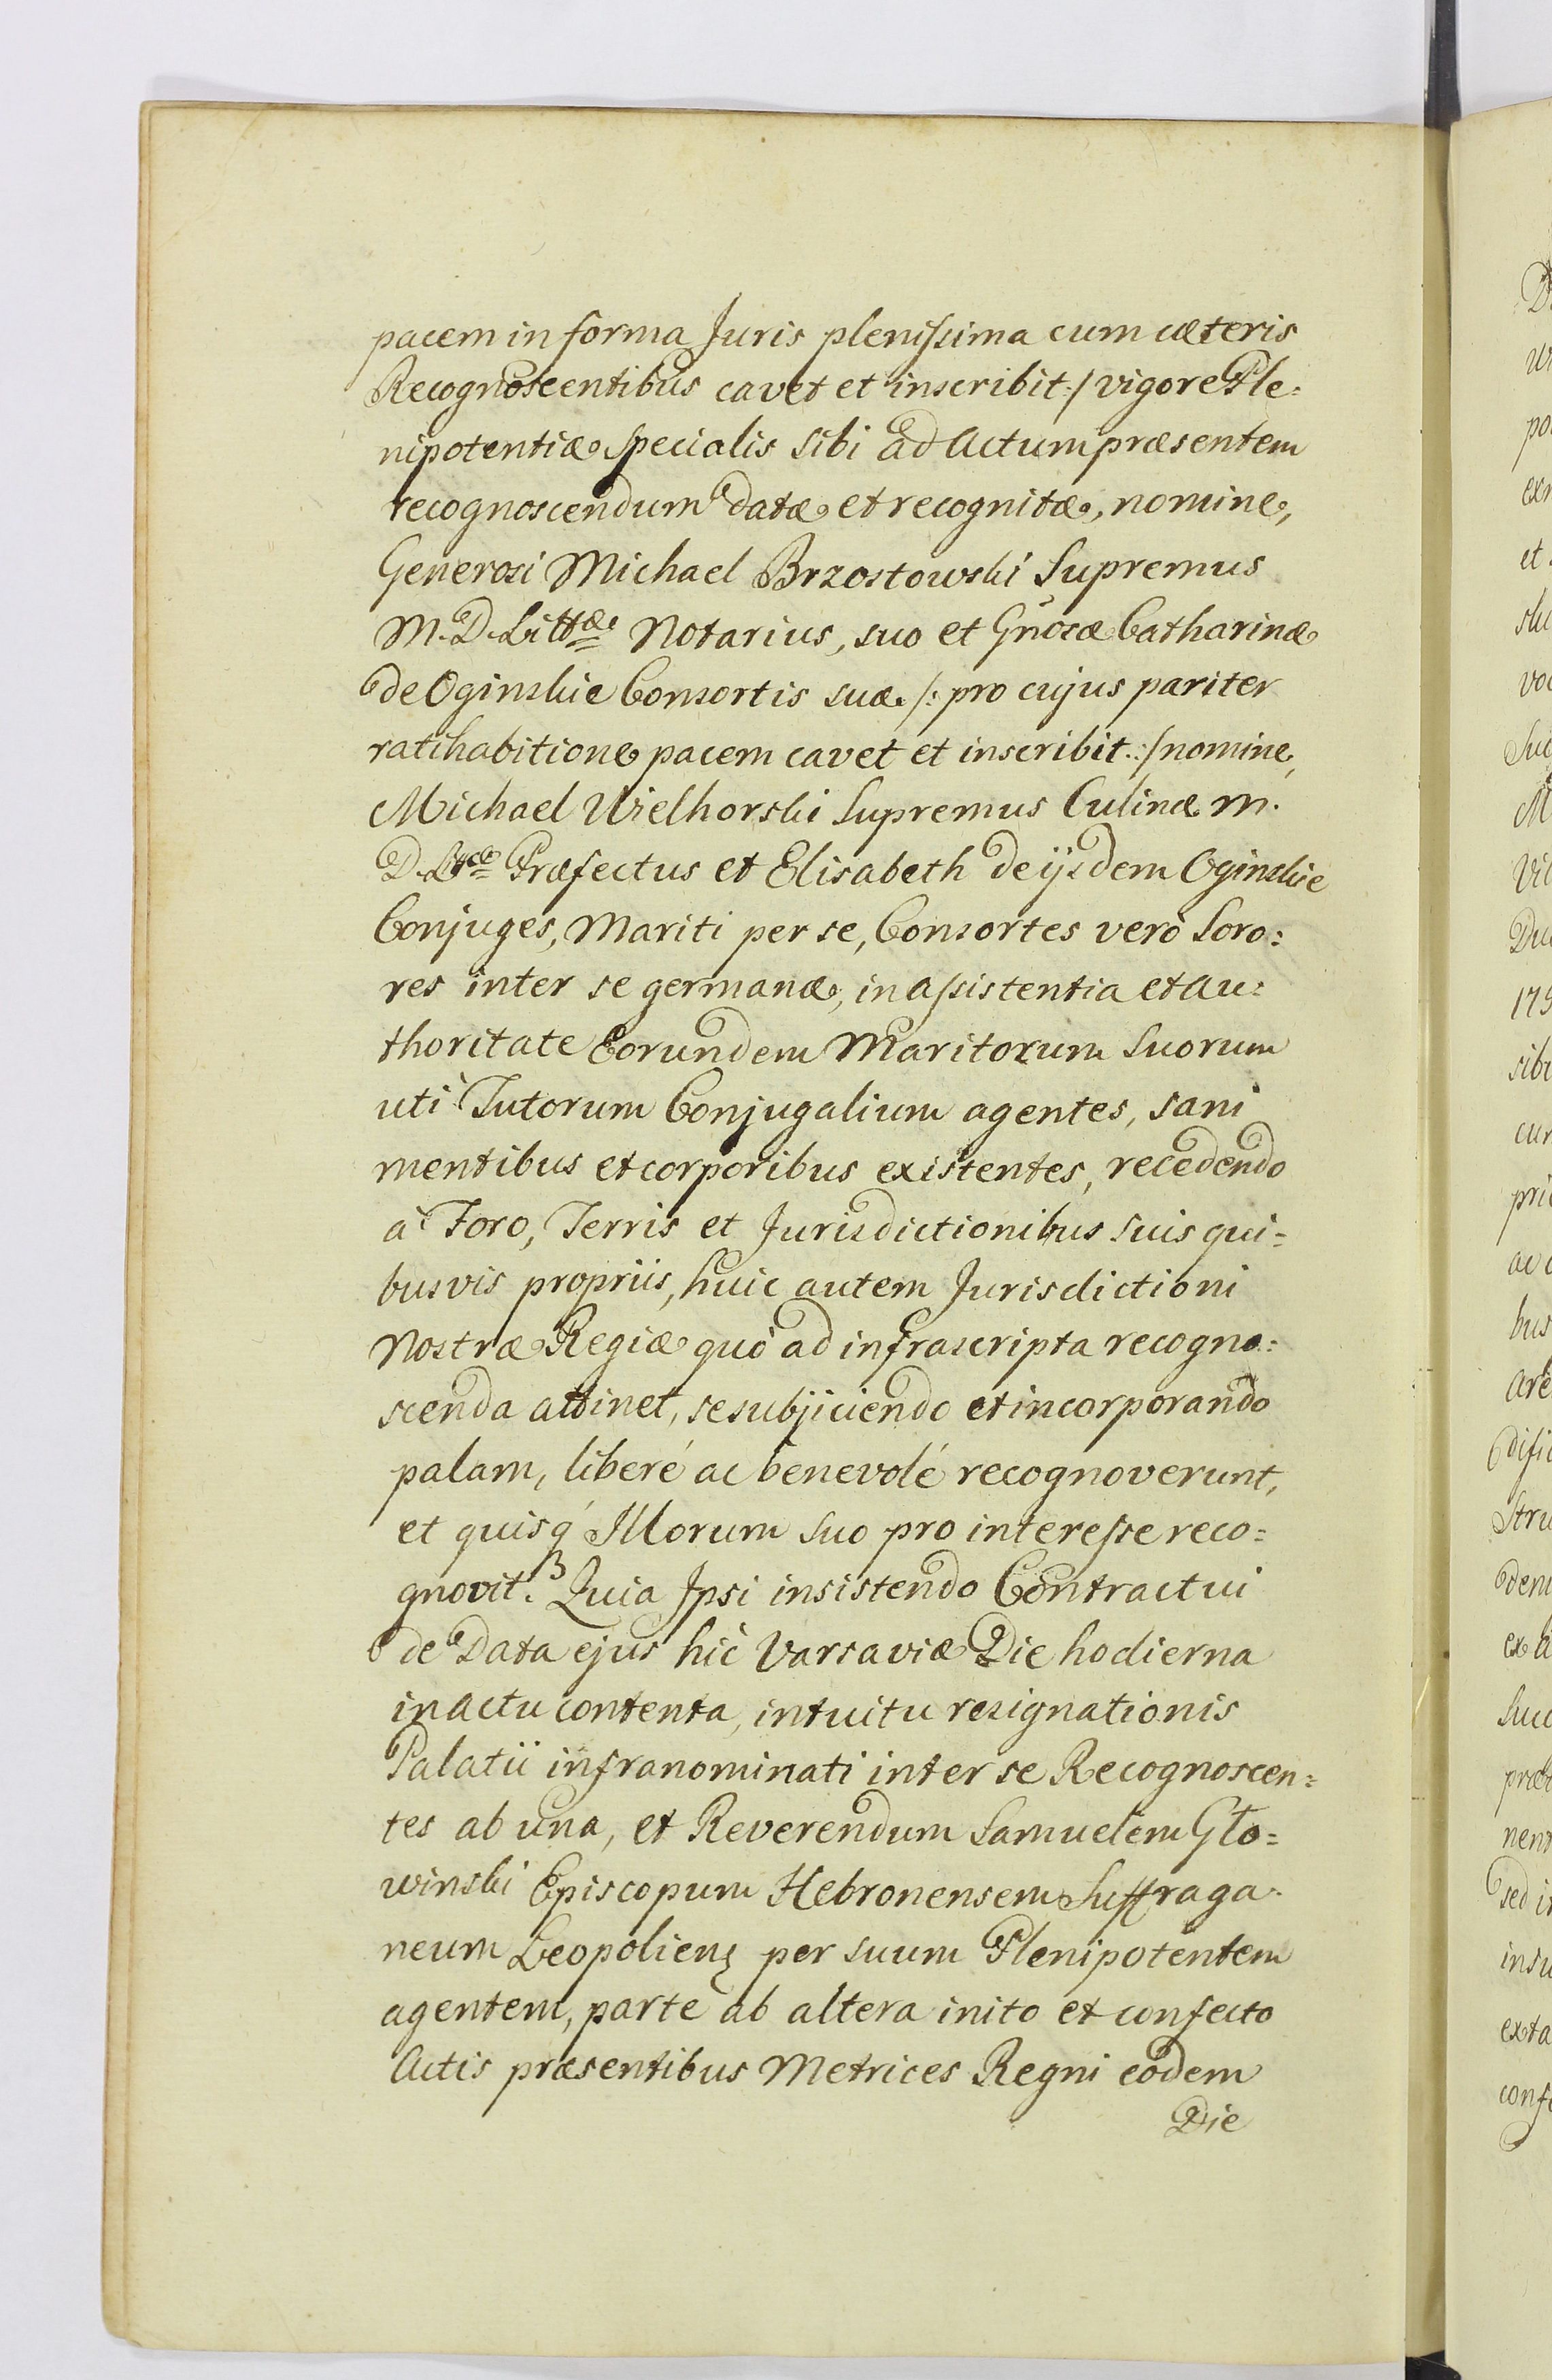 pacem in forma Juris plenissima cum cæteris
Recognoscentibus cavet et inscribit:/ vigore Ple:
nipotentiæ specialis sibi ad Actum præsentem
recognoscendum datæ et recognitæ, nomine,
Generosi Michael Brzostowski Supremus
M. D. Littæ Notarius, suo et Gnosæ Catharinæ
de Oginskie Consortis suæ /: pro cujus pariter
ratihabitione pacem cavet et inscribit :/ nomine,
Michael Wielhorski Supremus Culinæ M.
D. Præfectus et Elisabeth de ijsdem Oginskie
Conjuges, Mariti per se, Consortes verò Soro:
res inter se germanæ, in assistentia et Au:
thoritate Eorundem Maritorum Suorum
utì Tutorum Conjugalium agentes, sani
mentibus et corporibus existentes, recedendo
à Foro, Terris et Jurisdictionibus suis qui:
busvis propriis, huic autem Jurisdictioni
Nostræ Regiæ quò ad infrascripta recogno:
scenda attinet, se subjiciendo et incorporando
palam, liberé ac benevolé recognoverunt,
et quisq́ Illorum suo pro interesse reco:
gnovit. Quia Ipsi insistendo Contractui
de Data ejus hìc Varsaviæ Die hodierna
in actu contenta, intuitu resignationis
Palatii infranominati inter se Recognoscen:
tes ab una, et Reverendum Samuelem Gło:
winski Episcopum Hebronensem Suffraga:
neum Leopolien̨ per suum Plenipotentem
agentem, parte ab altera inito et confecto
Actis præsentibus Metrices Regni eodem
Die